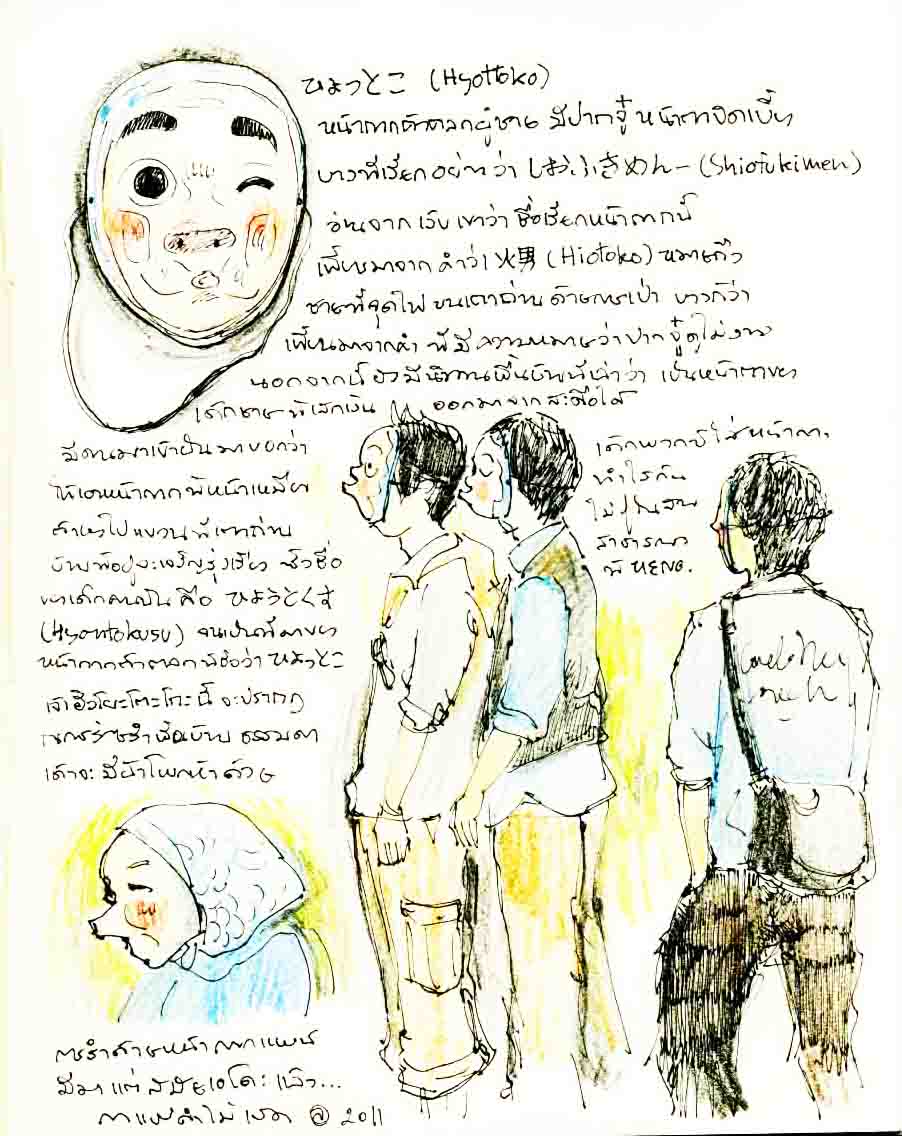 ひょっとこ (Hyottoko)
หน้ากากตัวตลกผู้ชาย มีปากจู๋ หน้าตาบิดเบี้ยว
บางที่เรียกอย่างว่า しおふきめん- (Shiofukimen)
อ่านจาก เว็บ เขาว่า ชื่อเรียกหน้ากากนี้
เพี้ยนมาจาก คำว่า 火男 (Hiotoko) หมายถึง
ชายที่จุดไฟ บนเตาถ่าน ด้วยการเป่า บางก็ว่า
เพี้ยนมาจากคำ ที่มีความหมายว่า ปากจู๋ดูไม่งาม
นอกจากนี้ ยังมีนิทานพื้นบ้านที่เล่าว่า เป็นหน้าตาของ
เด็กชายที่เสกเงิน ออกมาจากสะดือได้
มีคนมาเข้าฝัน มาบอกว่า
ให้เอาหน้ากากที่หน้าเหมือน
ตัวเขาไปแขวนที่เตาถ่าน
บ้านที่อยู่จะเจริญรุ่งเรือง ซึ่งชื่อ
ของเด็กคนนั้น คือ ひょうとくす
(Hyoutokusu) จนเป็นที่มาของ
หน้ากากตัวตลกที่ชื่อว่า ひょっとこ
เจ้าฮิวโยะโตะโกะนี้ จะปรากฏ
ในการร่ายรำพื้นบ้าน ธรรมดา
เค้าจะมีผ้าโพกหัวด้วย
เด็กพวกนี้ใส่หน้ากาก
ทำไรกัน
ไม่รู้ในสวน
สาธารณะ
ที่
การรำด้วยหน้ากากแบบนี้
มีมาแต่สมัยเอโดะแล้ว...
@ 2011